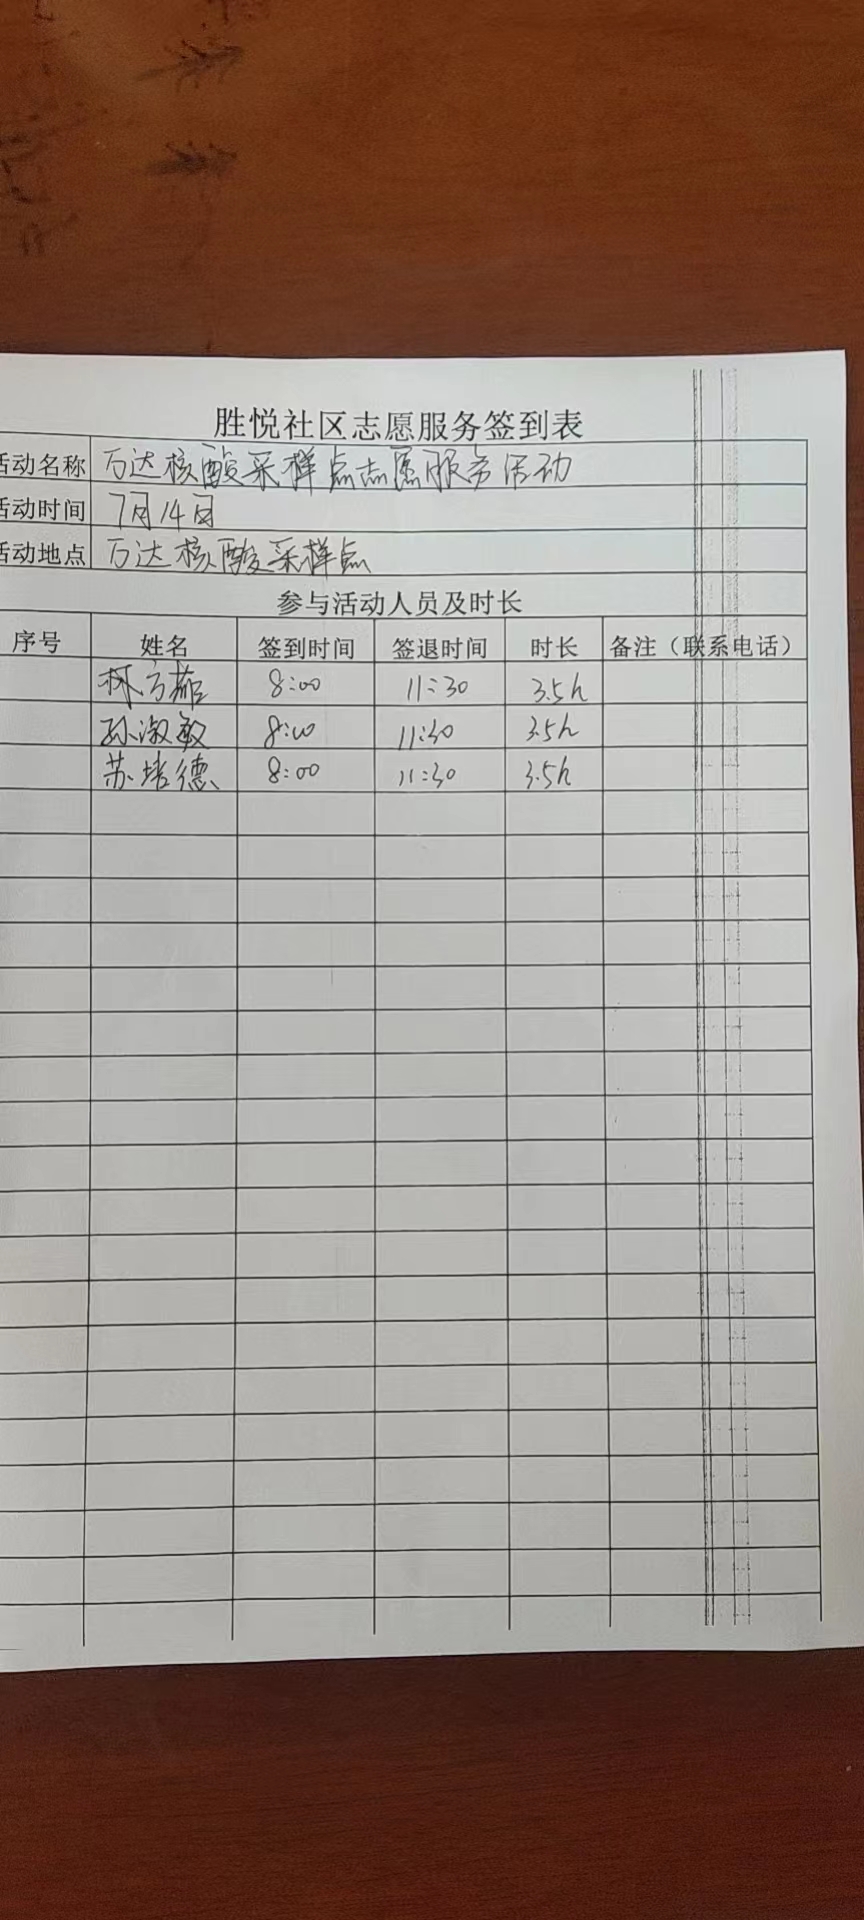 胜悦社区志愿服务签到表
活动名称 万达核酸采样点志愿服务活动
活动时间 7月14日
活动地点 万达核酸采样点
参与活动人员及时长
序号 姓名 签到时间 签退时间 时长 备注（联系电话）
林方茹 8:00 11:30 3.5h
孙淑敏 8:00 11:30 3.5h
苏培德 8:00 11:30 3.5h